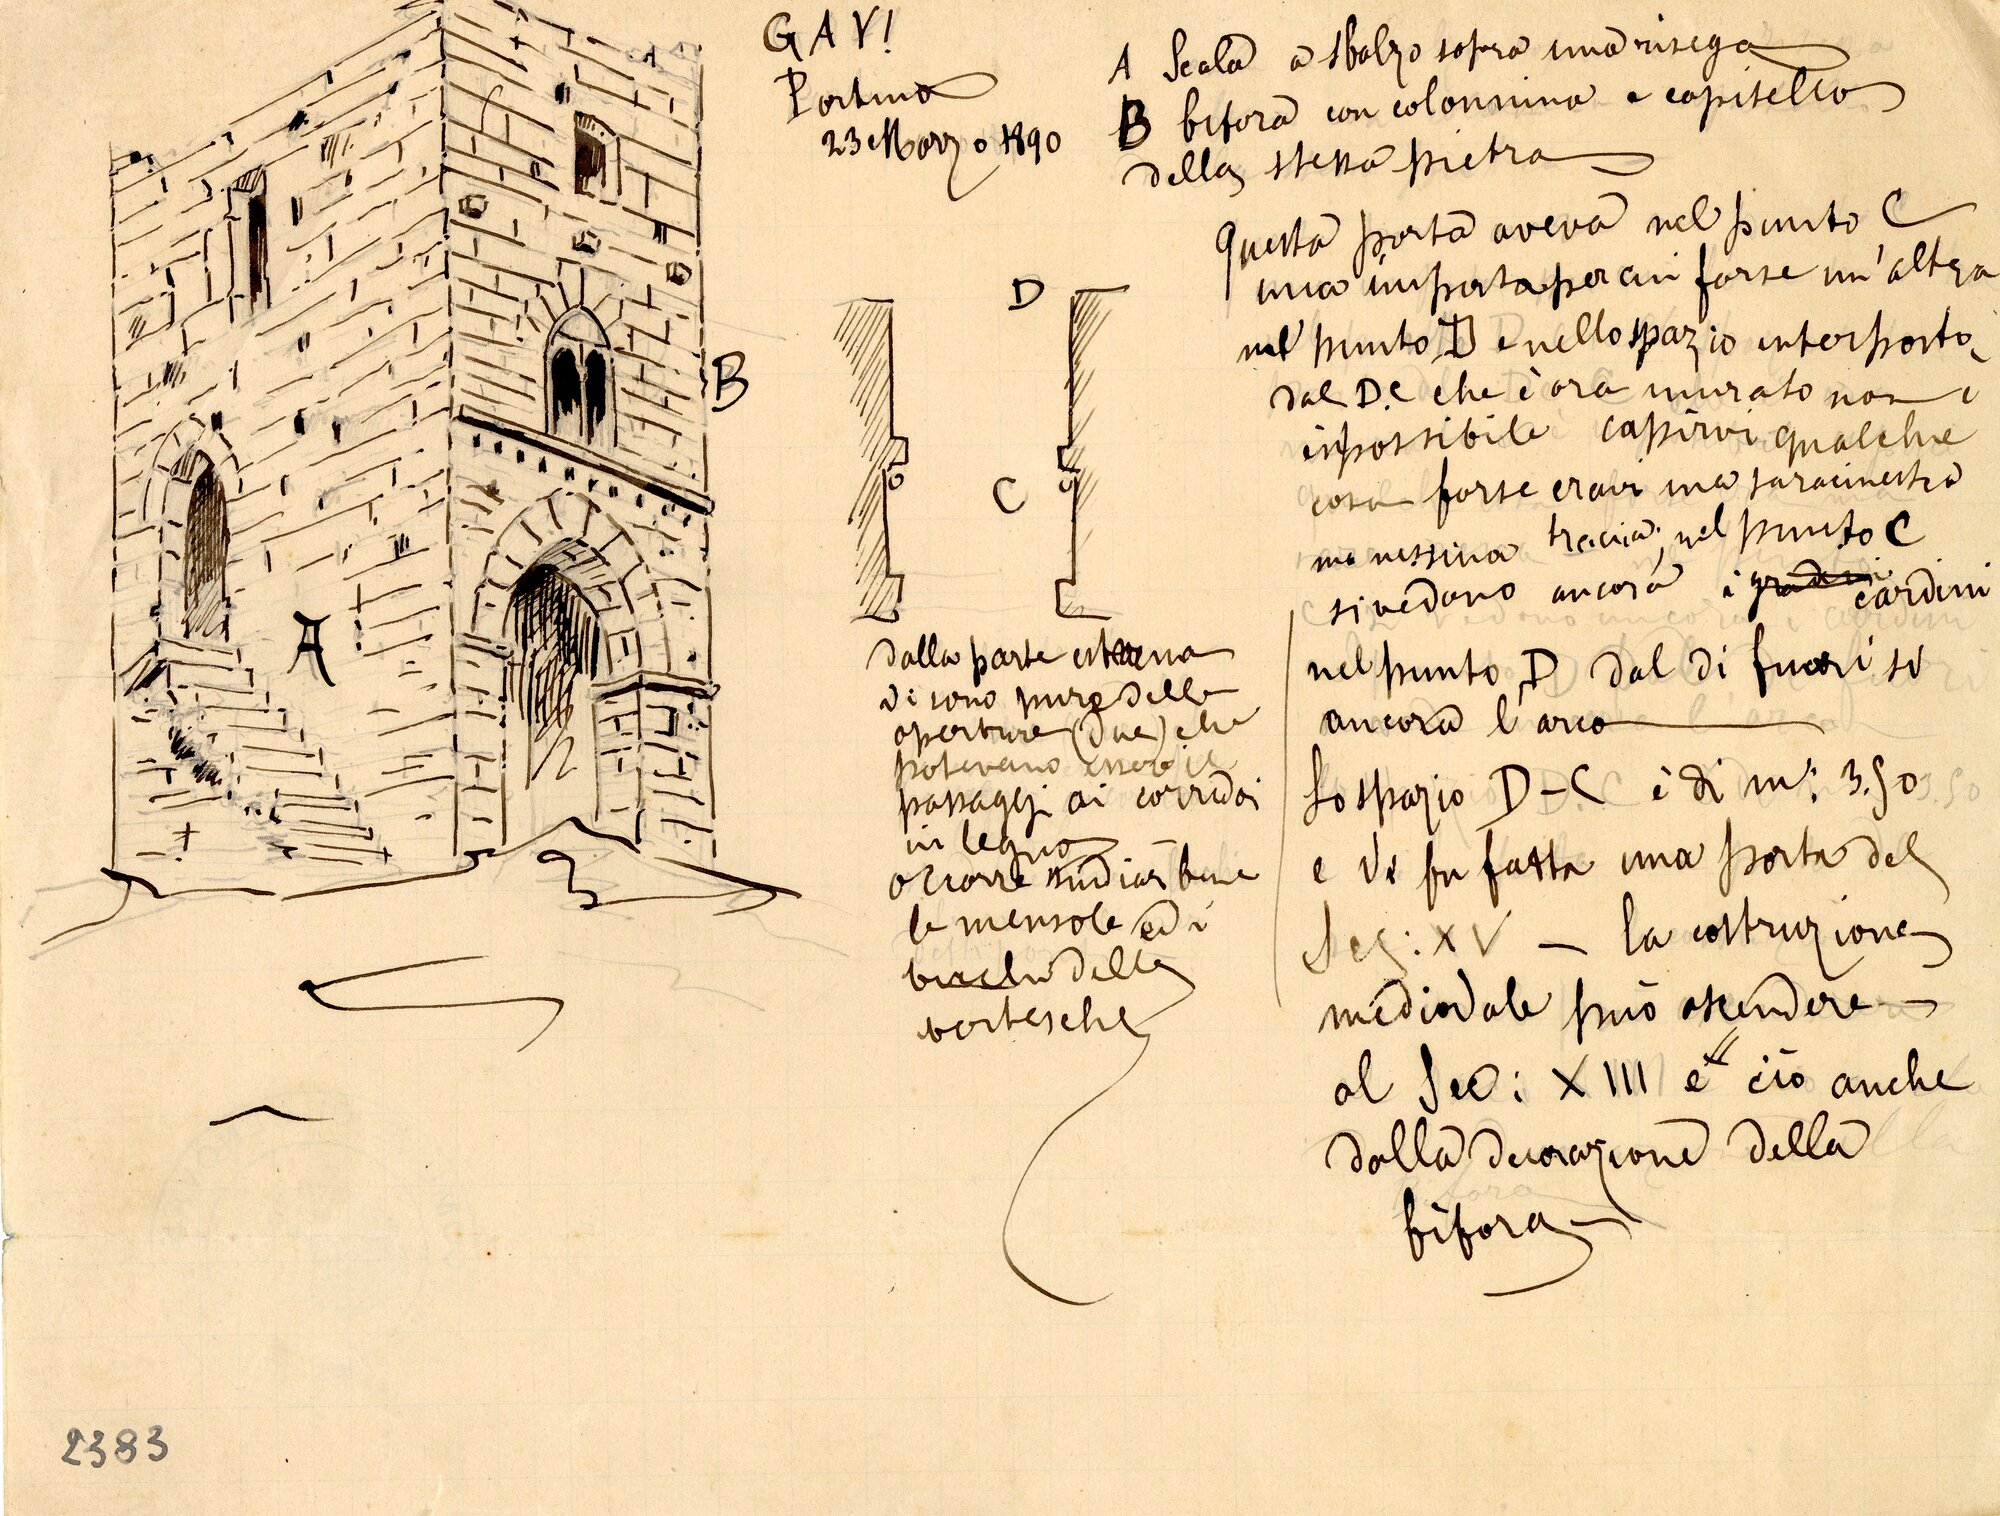 GAVI
Portino
23 Marzo 1890
A Scala a sbalzo sopra una risega
B bifora con colonnina e capitello
della stessa pietra
Questa porta aveva nel punto C
una imposta per cui forse un'altra
nel punto D e nello spazio interposto
dal D.C che è ora murato non è
impossibile capirvi qualche
cosa forse eravi una saracinesca
ma nessuna traccia, nel punto C
si vedono ancora i gradini cardini
nel punto D dal di fuori si
ancora l'arco
Lo spazio D-C è di m: 3.50
e vi fu fatta una porta del
Sec: XV — la costruzione
medioevale può ascendere
al Sec: XIII e ciò anche
dalla decorazione della
bifora
D
C
B
A
dalla parte esterna
vi sono pure delle
aperture (due) che
potevano essere i
passaggi ai corridoi
in legno
occorre studiar bene
le mensole ed i
buchi delle
bertesche
2383